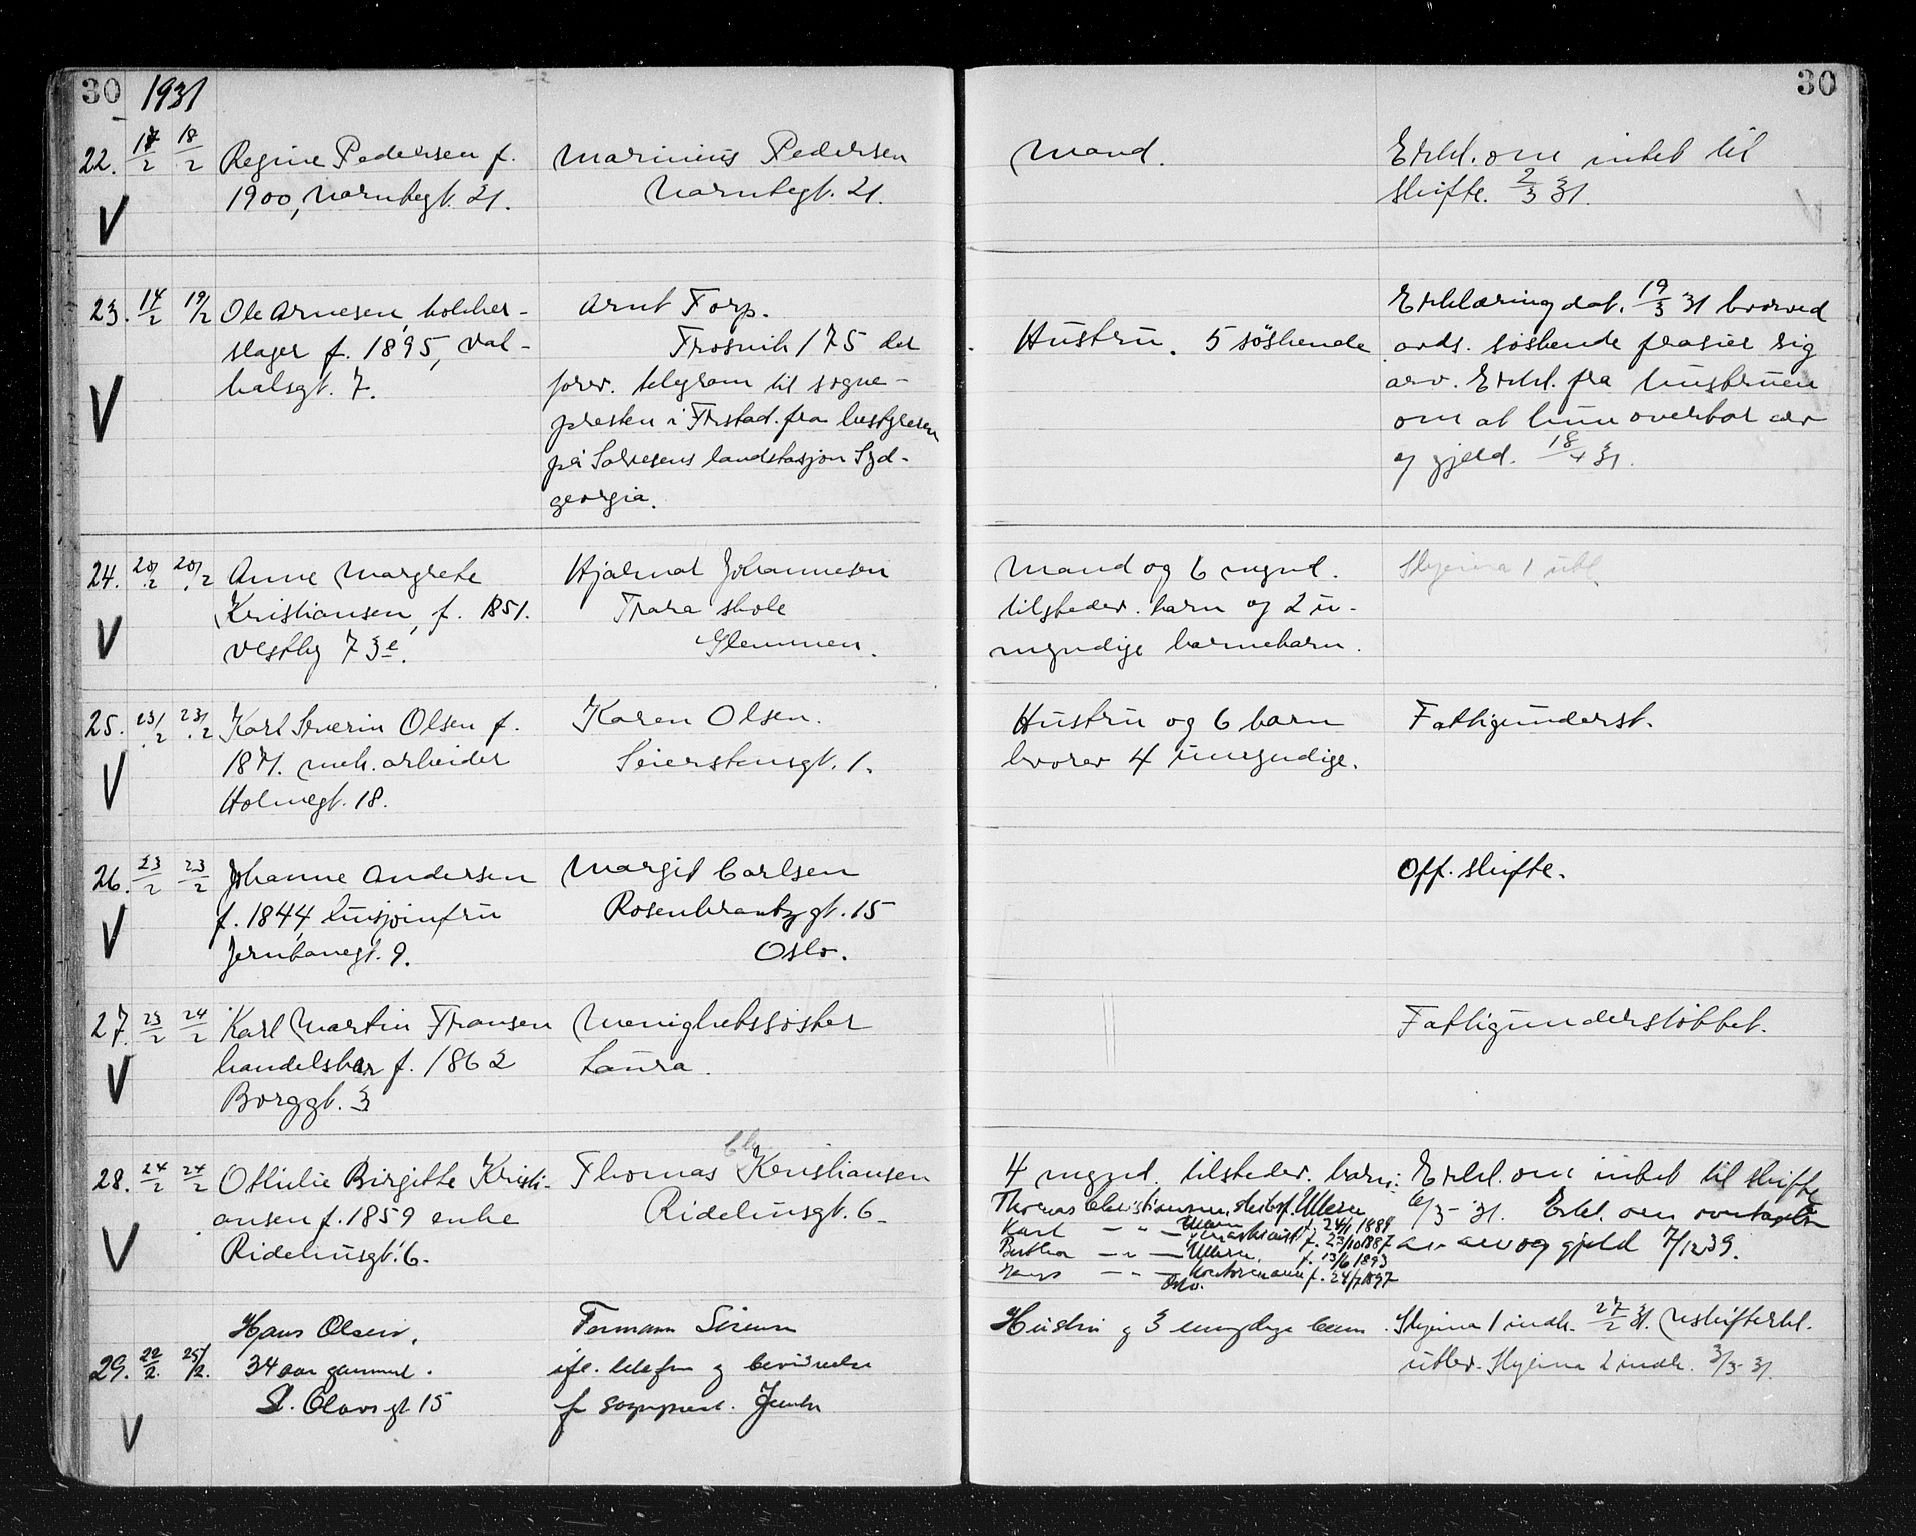 30 1931 30
22. 17/2 18/2 Regine Pedersen f. Marinius Pedersen Mand. Erkl. om intet til
1900, Varnbegt. 21. Varnbegt. 21. skifte. 2/3 31.
23. 14/2 19/2 Ole Arnesen, bokker- Arnt Torp. Erklæring dat. 19/3 31 hvorved
slager f. 1895, Val- Trosvik 175 der Hustru. 5 søskende avds. søskende frasier sig
halsgt. 7. forev. telegram til sogne- arv. Erkl. fra hustruen
presten i Frstad. fra bestyreren om at hun overtar arv
på Salvesens landstasjon Syd- og gjeld. 18/4 31.
georgia.
24. 20/2 20/2 Anne Margrete Hjalmar Johannesen Mand og 6 mynd. Skjema 1 utl.
Kristiansen, f. 1851. Trara skole tilstedev. barn og 2 u-
Vestby 73e. Glemmen. myndige barnebarn.
25. 23/2 23/2 Karl Severin Olsen f. Karen Olsen. Hustru og 6 barn Fattigunderst.
1871. mek. arbeider Seierstensgt. 1. hvorav 4 umyndige.
Holmegt. 18.
26. 23/2 23/2 Johanne Andersen Margit Carlsen Off. skifte.
f. 1844, husjomfru Rosenkrantzgt. 15
Jernbanegt. 9. Oslo.
27. 23/2 24/2 Karl Martin Fransen Menighetssøster Fattigunderstøttet.
handelsbær f. 1862 Laura.
Borggt. 3
28. 24/2 24/2 Othilie Birgitte Kristi- Thomas Kristiansen 4 mynd. tilstedev. barn: Erkl. om intet til skifte
ansen f. 1859 enke Ridehusgt. 6. Thomas Christiansen, 6/3-31. Erkl. om overtagelse
Ridehusgt. 6. Karl — " — f. 24/1 1889 av arv og gjeld 7/12 39.
f. 23/10 1887
Berthea — " — f. 13/6 1893
— " — f. 24/7 1897
Oslo.
Hans Olsen, Hustru og 3 umyndige barn. Skjema 1 indk. 27/2 31. Uskifteerkl.
29. 22/2. 25/2. 34 aar gammel. ifl. telefon og bevidnelse utlev. Skjema 2 indk. 3/3-31.
St. Olavsgt 15 fr sogneprest.